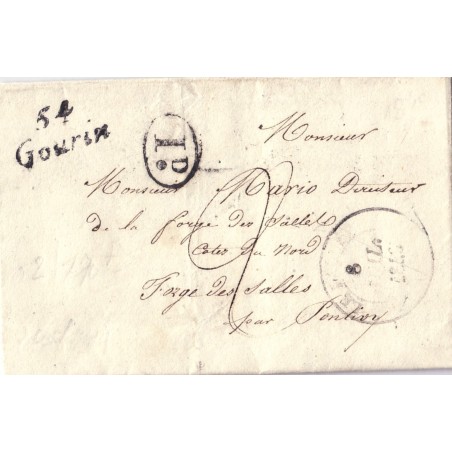 54
Gourin
1D.
Monsieur
Monsieur Mario Directeur
de la forge des Salles
Cotes du Nord
Forge des Salles
par Pontivy
2
8